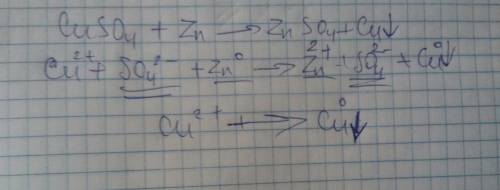 CuSO₄ + Zn → ZnSO₄ + Cu↓
Cu²⁺ + SO₄²⁻ + Zn⁰ → Zn²⁺ + SO₄²⁻ + Cu⁰↓
Cu²⁺ + → Cu⁰↓